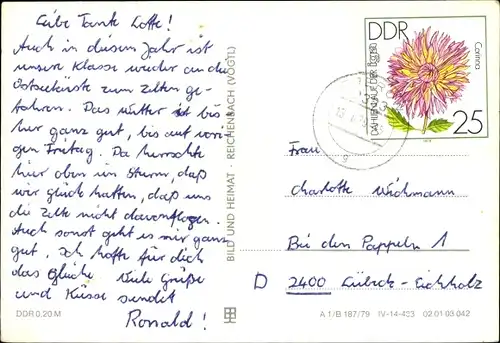 Liebe Tante Lotte!
Auch in diesem Jahr ist
unsere Klasse wieder an die
Ostseeküste zum zelten ge-
fahren. Das Wetter ist bis
her ganz gut, bis auf vori-
gen Freitag. Da herrschte
hier oben ein Sturm, daß
wir glück hatten, daß uns
die Zelte nicht davonflogen.
Auch sonst geht es mir ganz
gut. Ich hoffe für dich
das Gleiche Viele Grüße
und Küsse sendet
Ronald!
DDR 0,20 M
BILD UND HEIMAT · REICHENBACH (VOGTL)
DDR
Corinna
25
Frau
Charlotte Wichmann
Bei den Pappeln 1
D 2400 Lübeck-Eichholz
A 1/B 187/79 IV-14-483 02 01 03 042